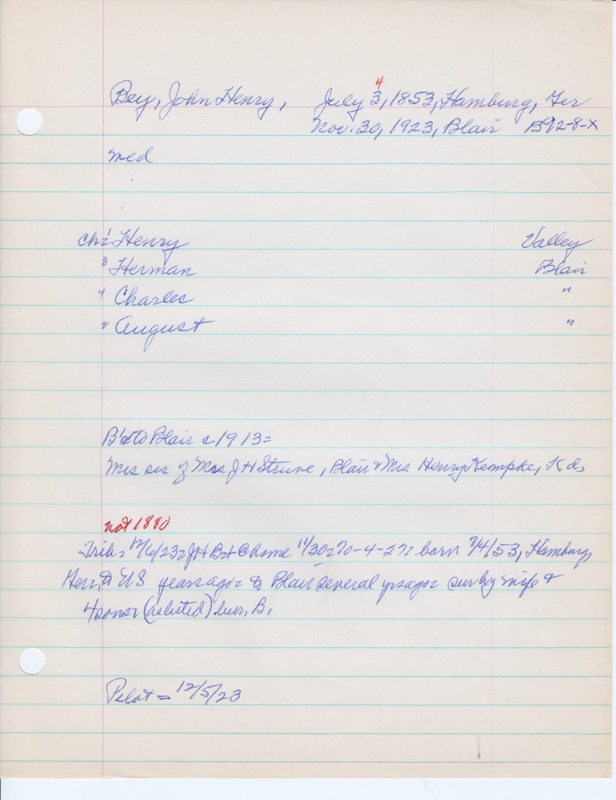 4
Bey, John Henry, July 3, 1853, Hamburg, Ger
Nov. 30, 1923, Blair B92-8-X
med
ch: Henry Valley
" Herman Blair
" Charles "
" August "
to Blair c 1913=
Mrs sis of Mrs J H Struve, Blair & Mrs Henry Kempke, K
not 1880
Trib: 12/6/23= J H B @ home 11/30= 70-4-27= born 7/4/53, Hamburg,
Ger= to US years ago= to Blair several yrs ago= sur by wife &
4 sons= (as listed) bur. B.
Pilot = 12/5/23